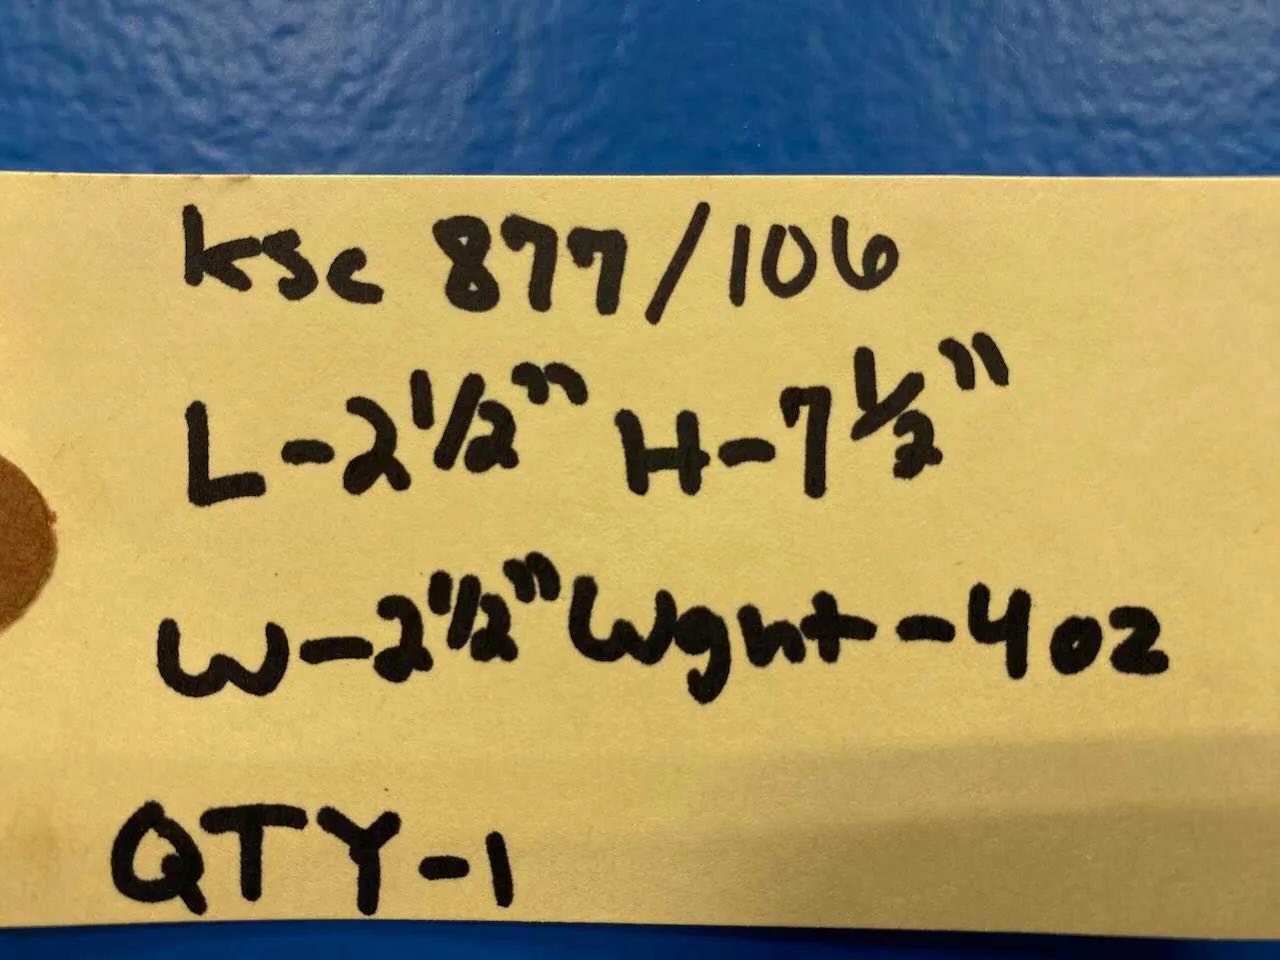 KSC 877/106
L-2 1/2" H-7 1/2"
W-2 1/2" Wght-4oz
QTY-1